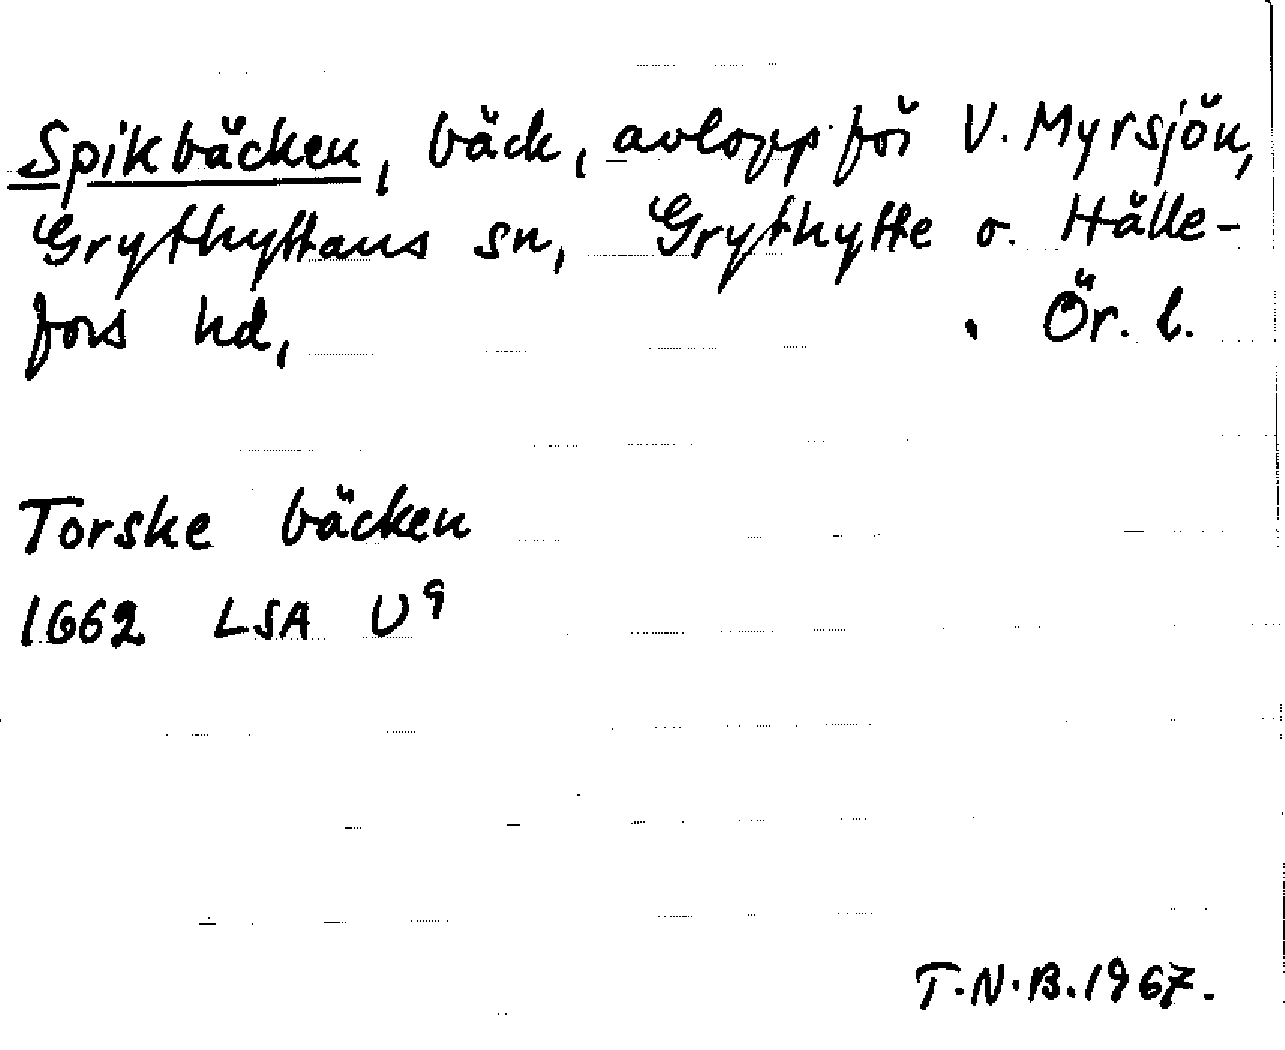 Spikbäcken, bäck, avlopp för V. Myrsjön,
Grythyttans sn, Grythytte o. Hälle-
fors hd, . Ör. l.
Torske bäcken
1662 LSA U⁹
T.N.B. 1967.